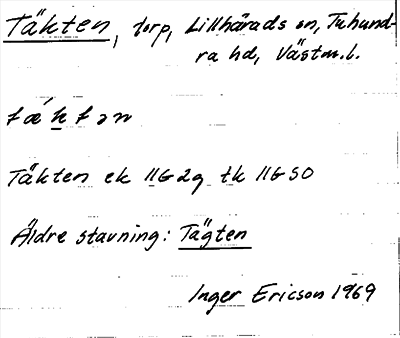 Täkten, torp, Lillhärads sn, Tuhund-
ra hd, Västm.l.
tǽktən
Täkten ek 11G2g tk 11G SO
Äldre stavning: Tägten
Inger Ericson 1969